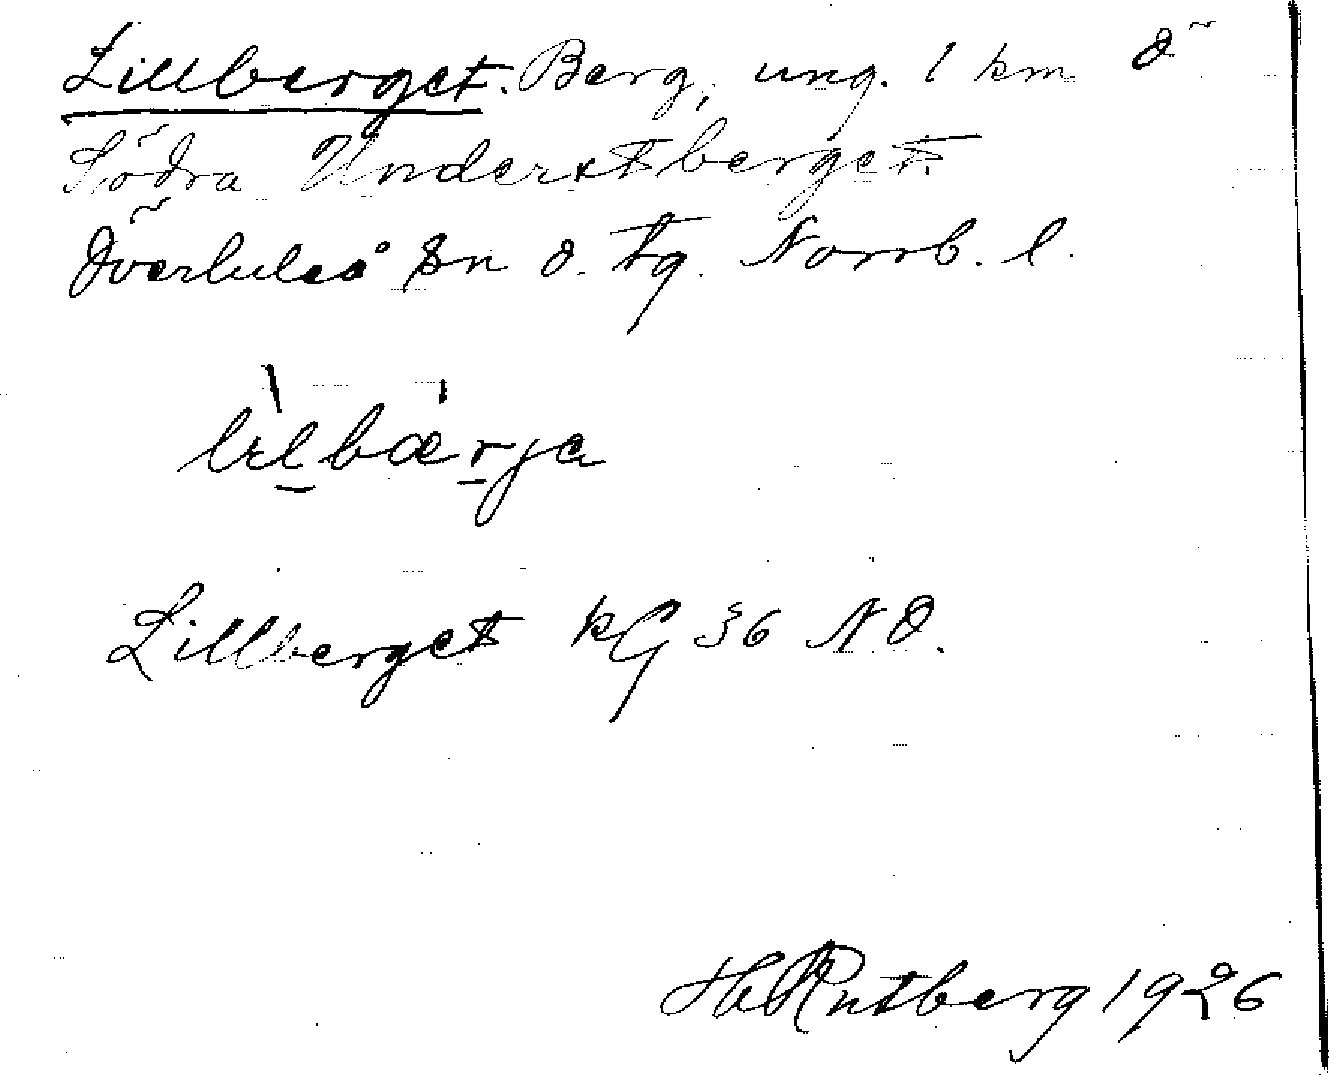 Lillberget. Berg, ung. 1 km Ö
Södra Understberget.
Överluleå Sn Ö. tg. Norrb. l.
lìlbǽrja
Lillberget kG 36 NO.
H Rutberg 1926